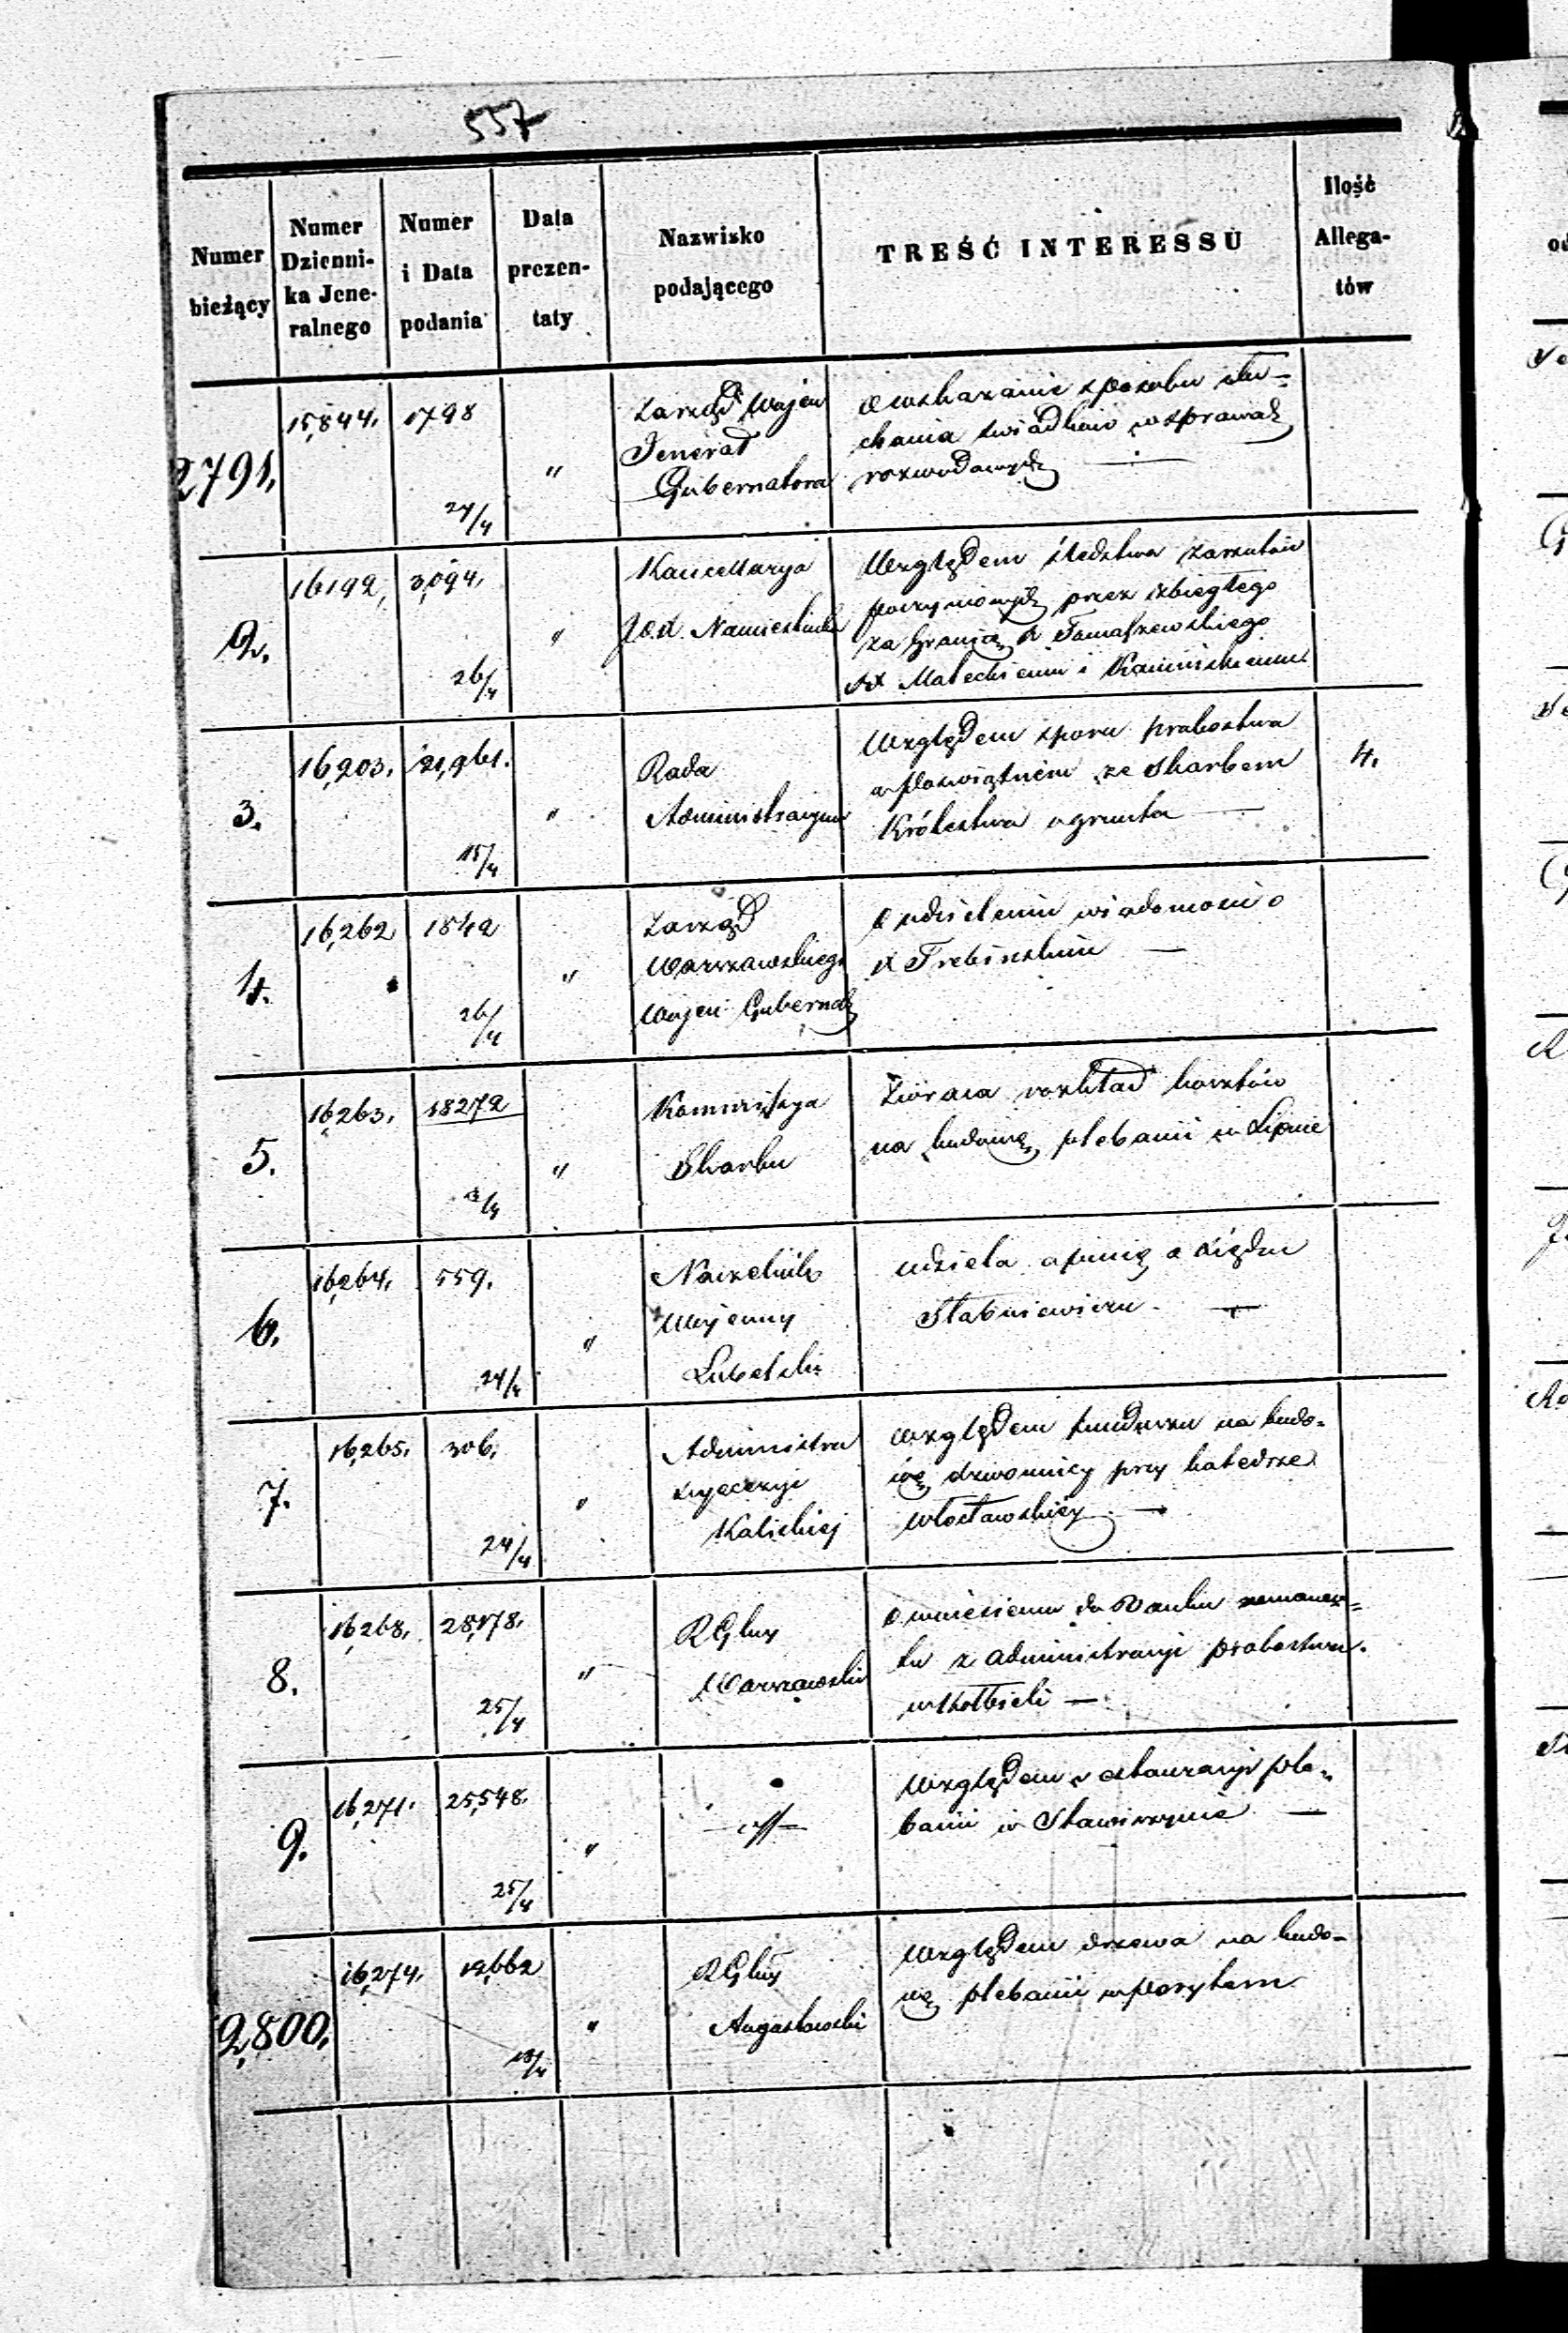 557
Numer bieżący | Numer Dzienni- ka Jene- ralnego | Numer i Data podania | Data prezen- taty | Nazwisko podającego | TREŚĆ INTERESSU | Ilość Allega- tów
2791. 15,844. 1798 24/4 "
Zarząd Wojen
Jenerał
Gubernatora
O wskazanie sposobu słu-
chania świadków w sprawach
rozwodowych —
2. 16192, 3,094. 26/4 "
Kancellarya
Namiestnika
Względem śledztwa zarzutów
poczynionych przez zbiegłego
za granicę X Tomaszewskiego
XX Małeckiemu i Kamińskiemu
3. 16,203. 21,961. 15/4 "
Rada
Administracyjna
Względem sporu probostwa
w Poświętnem ze Skarbem
Królestwa o grunta —
4.
4. 16,262 1842 26/4 "
Zarząd
Warszawskiego
Wojen Gubernat
O udzielenie wiadomości o
X Trebinskim —
5. 16,263. 18272 "
Kommissya
Skarbu
Zwraca rozkład kosztów
na budowę plebanii w Lipnie
6. 16,264. 559. 24/4 "
Naczelnik
Wojenny
Lubelski
udziela opinię o Księdzu
7. 16,265. 306. 24/4 "
Administra
Dyecezyi
Kaliskiej
Względem funduszu na budo-
wę dzwonnicy przy katedrze
Włocławskiej —
8. 16,268. 28,178. 25/4 "
RGlny
Warszawski
O wniesieniu do Banku remanen-
tu z administracyi probostwa
w Kołbieli —
9. 16,271. 25,548. 25/4 "
Względem restauracyi ple-
banii w —
2,800. 16,274. 12,662 "
RGlny
Augustowski
Względem drzewa na budo-
wę plebanii w Porytem